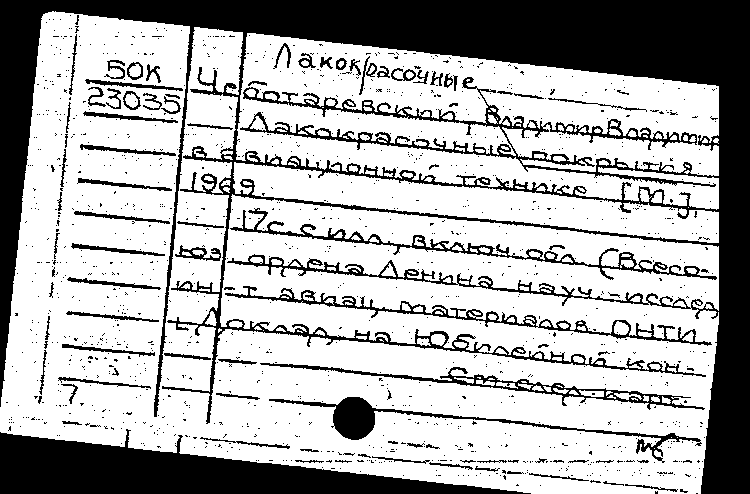 Лакокрасочные
50К
23035
Чеботаревский, Владимир Владимир
Лакокрасочные покрытия
в авиационной технике [М.],
1969.
17с. с илл., включ. обл. (Всесо-
юз. ордена Ленина науч.-исслед
ин-т авиац. материалов. ОНТИ.
Доклад на Юбилейной кон-
См. след. карт.
7